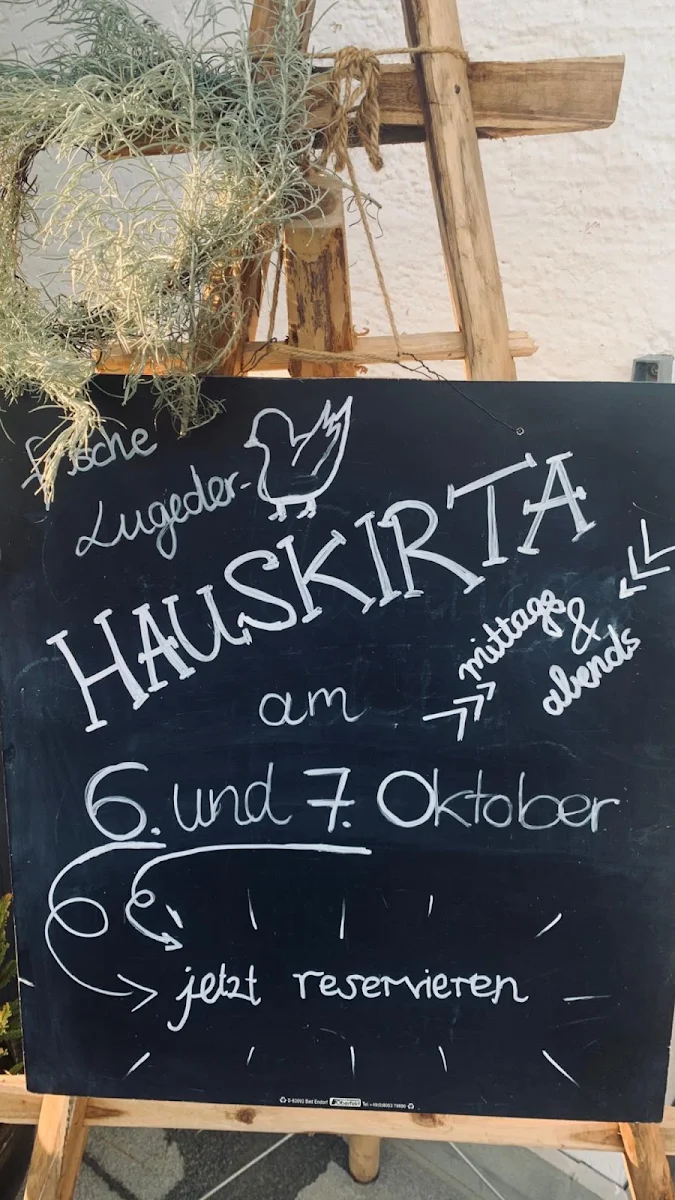 frische
Lugeder-
HAUSKIRTA
mittags
&
abends
am
6. und 7. Oktober
jetzt reservieren
D-83093 Bad Endorf